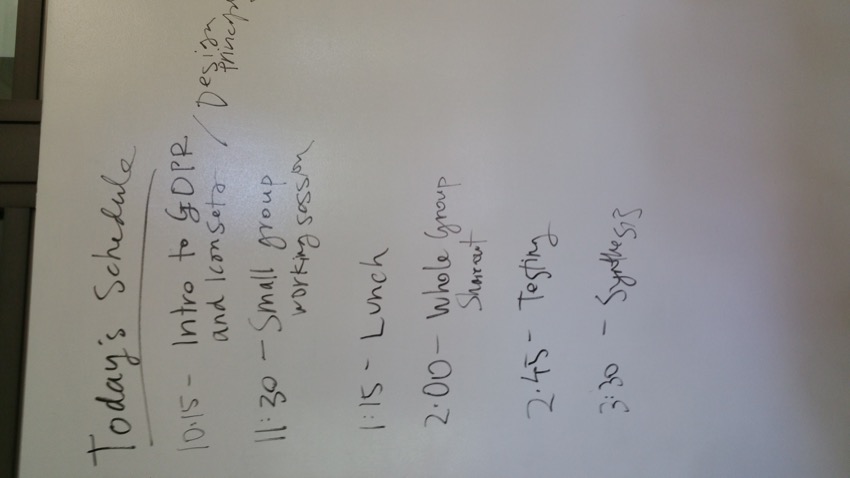 Today's Schedule
10:15 - Intro to GDPR
and Iconsets / Design
11:30 - Small group
working session
1:15 - Lunch
2:00 - Whole Group
Shareout
2:45 - Testing
3:30 - Synthesis